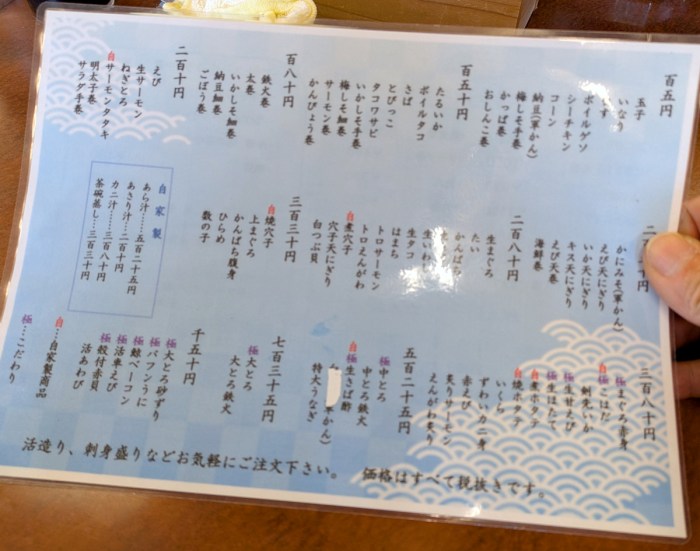 百五円
玉子
いなり
ボイルゲソ
シーチキン
コーン
納豆(軍かん)
梅しそ手巻
かっぱ巻
おしんこ巻
百五十円
たるいか
ボイルタコ
さば
とびっこ
タコワサビ
いかしそ手巻
梅しそ細巻
サーモン巻
かんぴょう巻
百八十円
鉄火巻
太巻
いかしそ細巻
納豆細巻
ごぼう巻
二百十円
えび
生サーモン
ねぎとろ
自サーモンタタキ
明太子巻
サラダ手巻
かにみそ(軍かん)
えび天にぎり
いか天にぎり
キス天にぎり
えび天巻
海鮮巻
二百八十円
生まぐろ
たい
かんぱち
はまち
生タコ
トロサーモン
トロえんがわ
自煮穴子
穴子天にぎり
白つぶ貝
三百三十円
自焼穴子
上まぐろ
かんぱち腹身
ひらめ
数の子
自家製
あら汁……五百二十五円
あさり汁……二百十円
カニ汁……三百八十円
茶碗蒸し…三百三十円
三百八十円
極まぐろ赤身
自極こはだ
剣先いか
極生甘えび
極生ほたて
自煮ホタテ
自焼ホタテ
いくら
ずわいカニ身
赤えび
炙りサーモン
えんがわ炙り
五百二十五円
極中とろ
中とろ鉄火
自極生さば酢
特大うなぎ
七百三十五円
極大とろ
大とろ鉄火
千五十円
極大とろ砂ずり
極バフンうに
極鯨ベーコン
極活車えび
極殻付赤貝
活あわび
自…自家製商品
極…こだわり
活造り、刺身盛りなどお気軽にご注文下さい。 価格はすべて税抜きです。